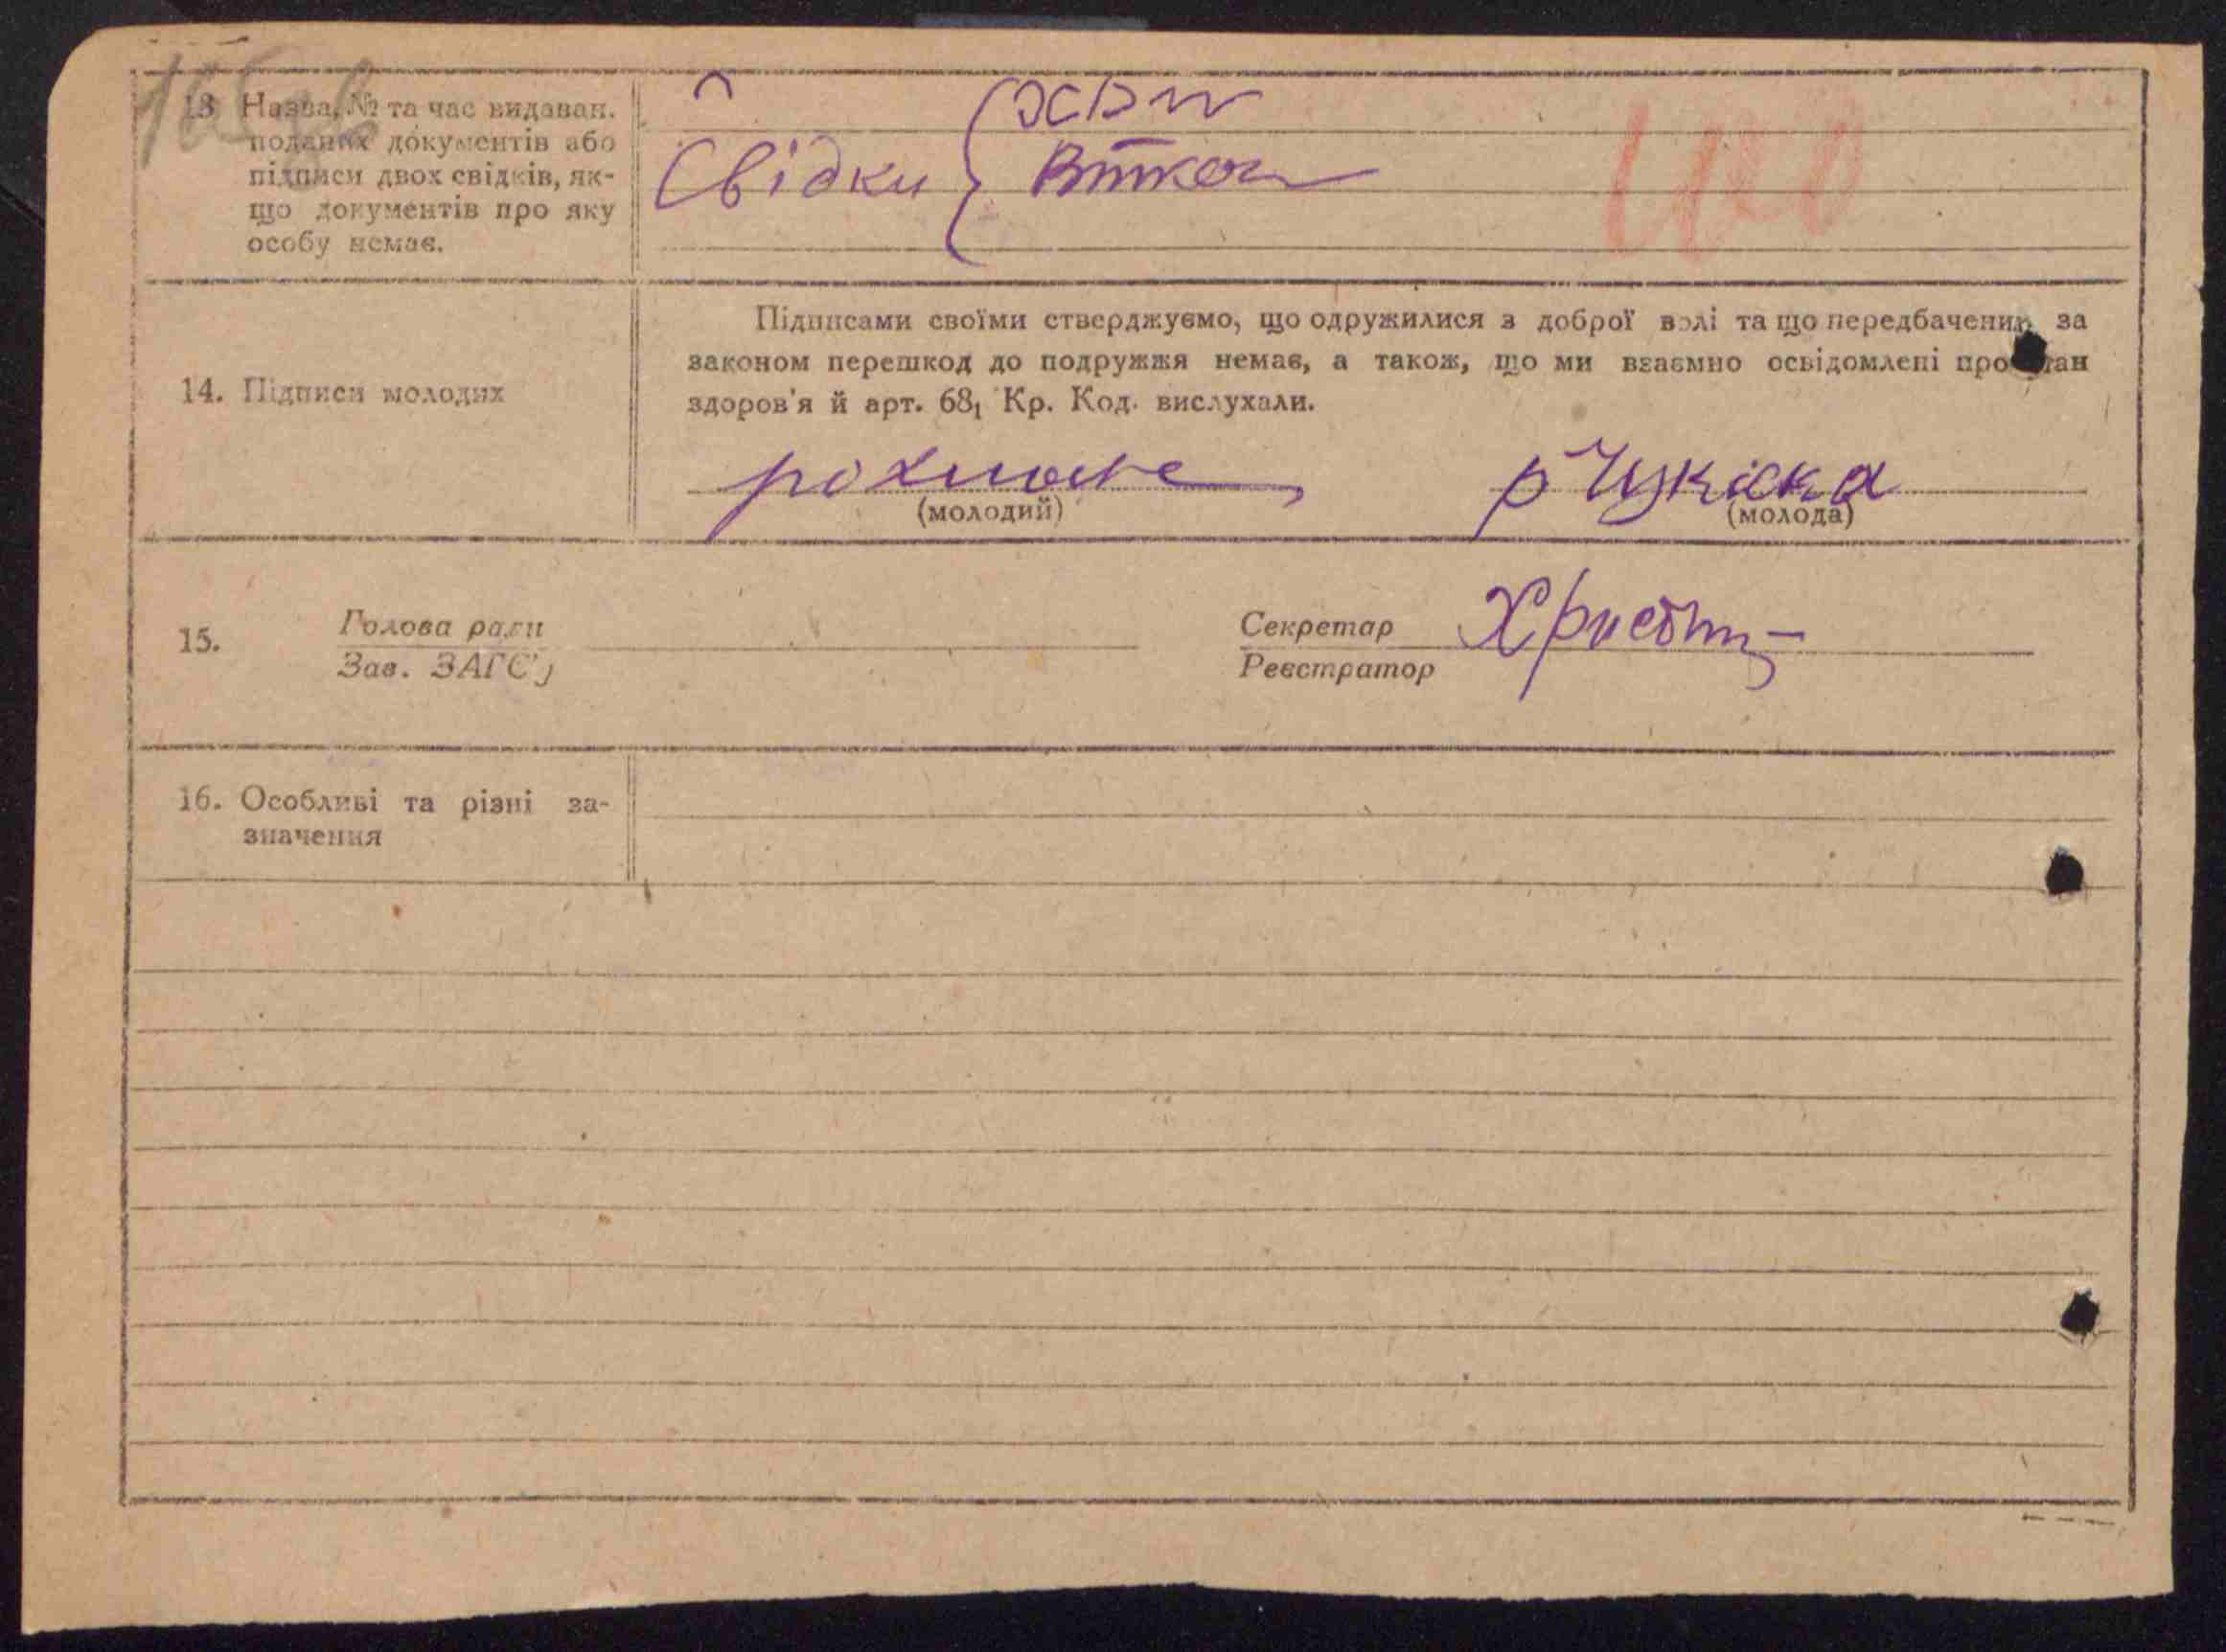 13 Назва, № та час видаван.
поданих документів або
підписи двох свідків, як-
що документів про яку
особу немає.
Свідки
14. Підписи молодих
Підписами своїми стверджуємо, що одружилися з доброї волі та що передбачених за
законом перешкод до подружжя немає, а також, що ми взаємно освідомлені про стан
здоров'я й арт. 68₁ Кр. Код. вислухали.
(молодий)
(молода)
15. Голова ради
Зав. ЗАГС'у
Секретар
Реєстратор
16. Особливі та різні за-
значення